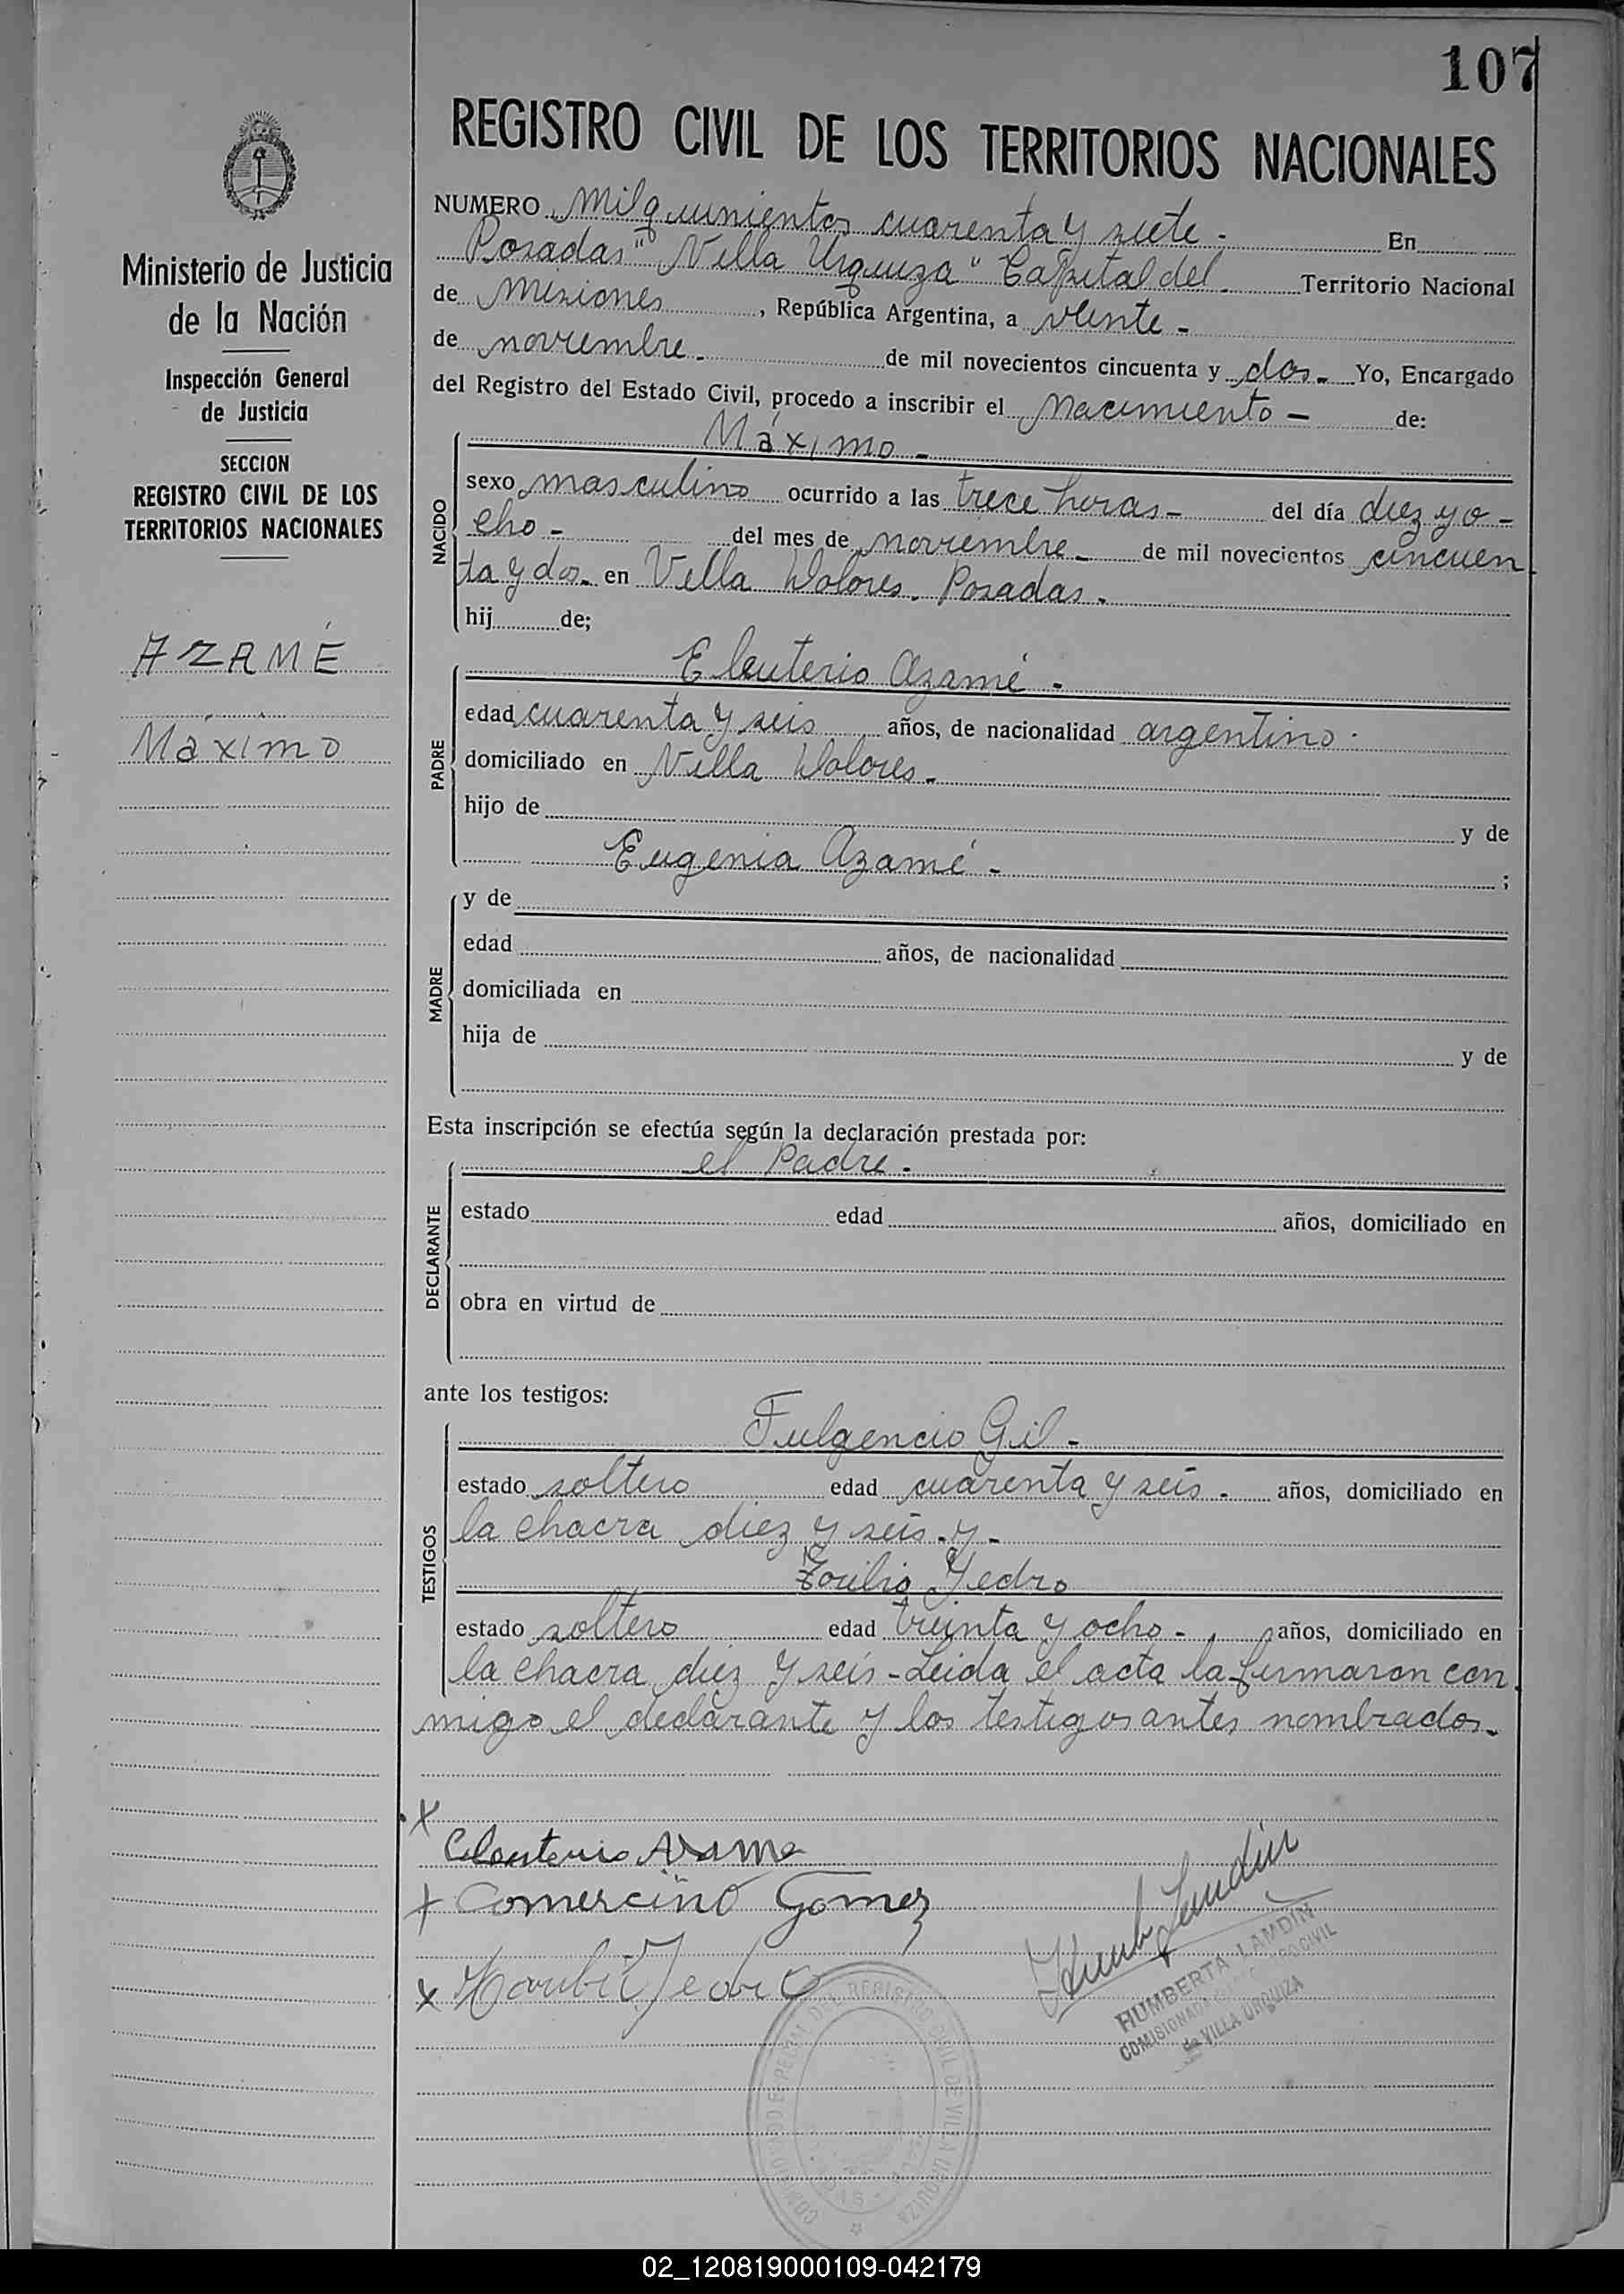 107
REGISTRO CIVIL DE LOS TERRITORIOS NACIONALES
Ministerio de Justicia
de la Nación
Inspección General
de Justicia
SECCION
REGISTRO CIVIL DE LOS
TERRITORIOS NACIONALES
AZAMÉ
Máximo
NUMERO Mil quinientos cuarenta y siete - En
Posadas "Villa Urquiza" Capital del - Territorio Nacional
de Misiones, República Argentina, a veinte -
de noviembre - de mil novecientos cincuenta y dos - Yo, Encargado
del Registro del Estado Civil, procedo a inscribir el Nacimiento - de:
NACIDO
Máximo -
sexo masculino ocurrido a las trece horas - del día diez y o -
cho - del mes de noviembre - de mil novecientos cincuen
ta y dos - en Villa Dolores. Posadas -
hij de;
PADRE
Eleuterio Azamé -
edad cuarenta y seis años, de nacionalidad argentino -
domiciliado en Villa Dolores -
hijo de y de
Eugenia Azamé - ;
MADRE
y de
edad años, de nacionalidad
domiciliada en
hija de y de
Esta inscripción se efectúa según la declaración prestada por:
DECLARANTE
el Padre -
estado edad años, domiciliado en
obra en virtud de
ante los testigos:
TESTIGOS
Fulgencio Gil -
estado soltero edad cuarenta y seis - años, domiciliado en
la chacra diez y seis - y -
Yedro
estado soltero edad treinta y ocho - años, domiciliado en
la chacra diez y seis - Leida el acta la firmaron con
migo el declarante y los testigos antes nombrados -
x
Eleuterio Azame
+ Comercino Gomez
x
HUMBERTA LANDIN
COMISIONADA CIVIL
de VILLA URQUIZA
DEL REGISTRO CIVIL DE VILLA URQUIZA
02_120819000109-042179